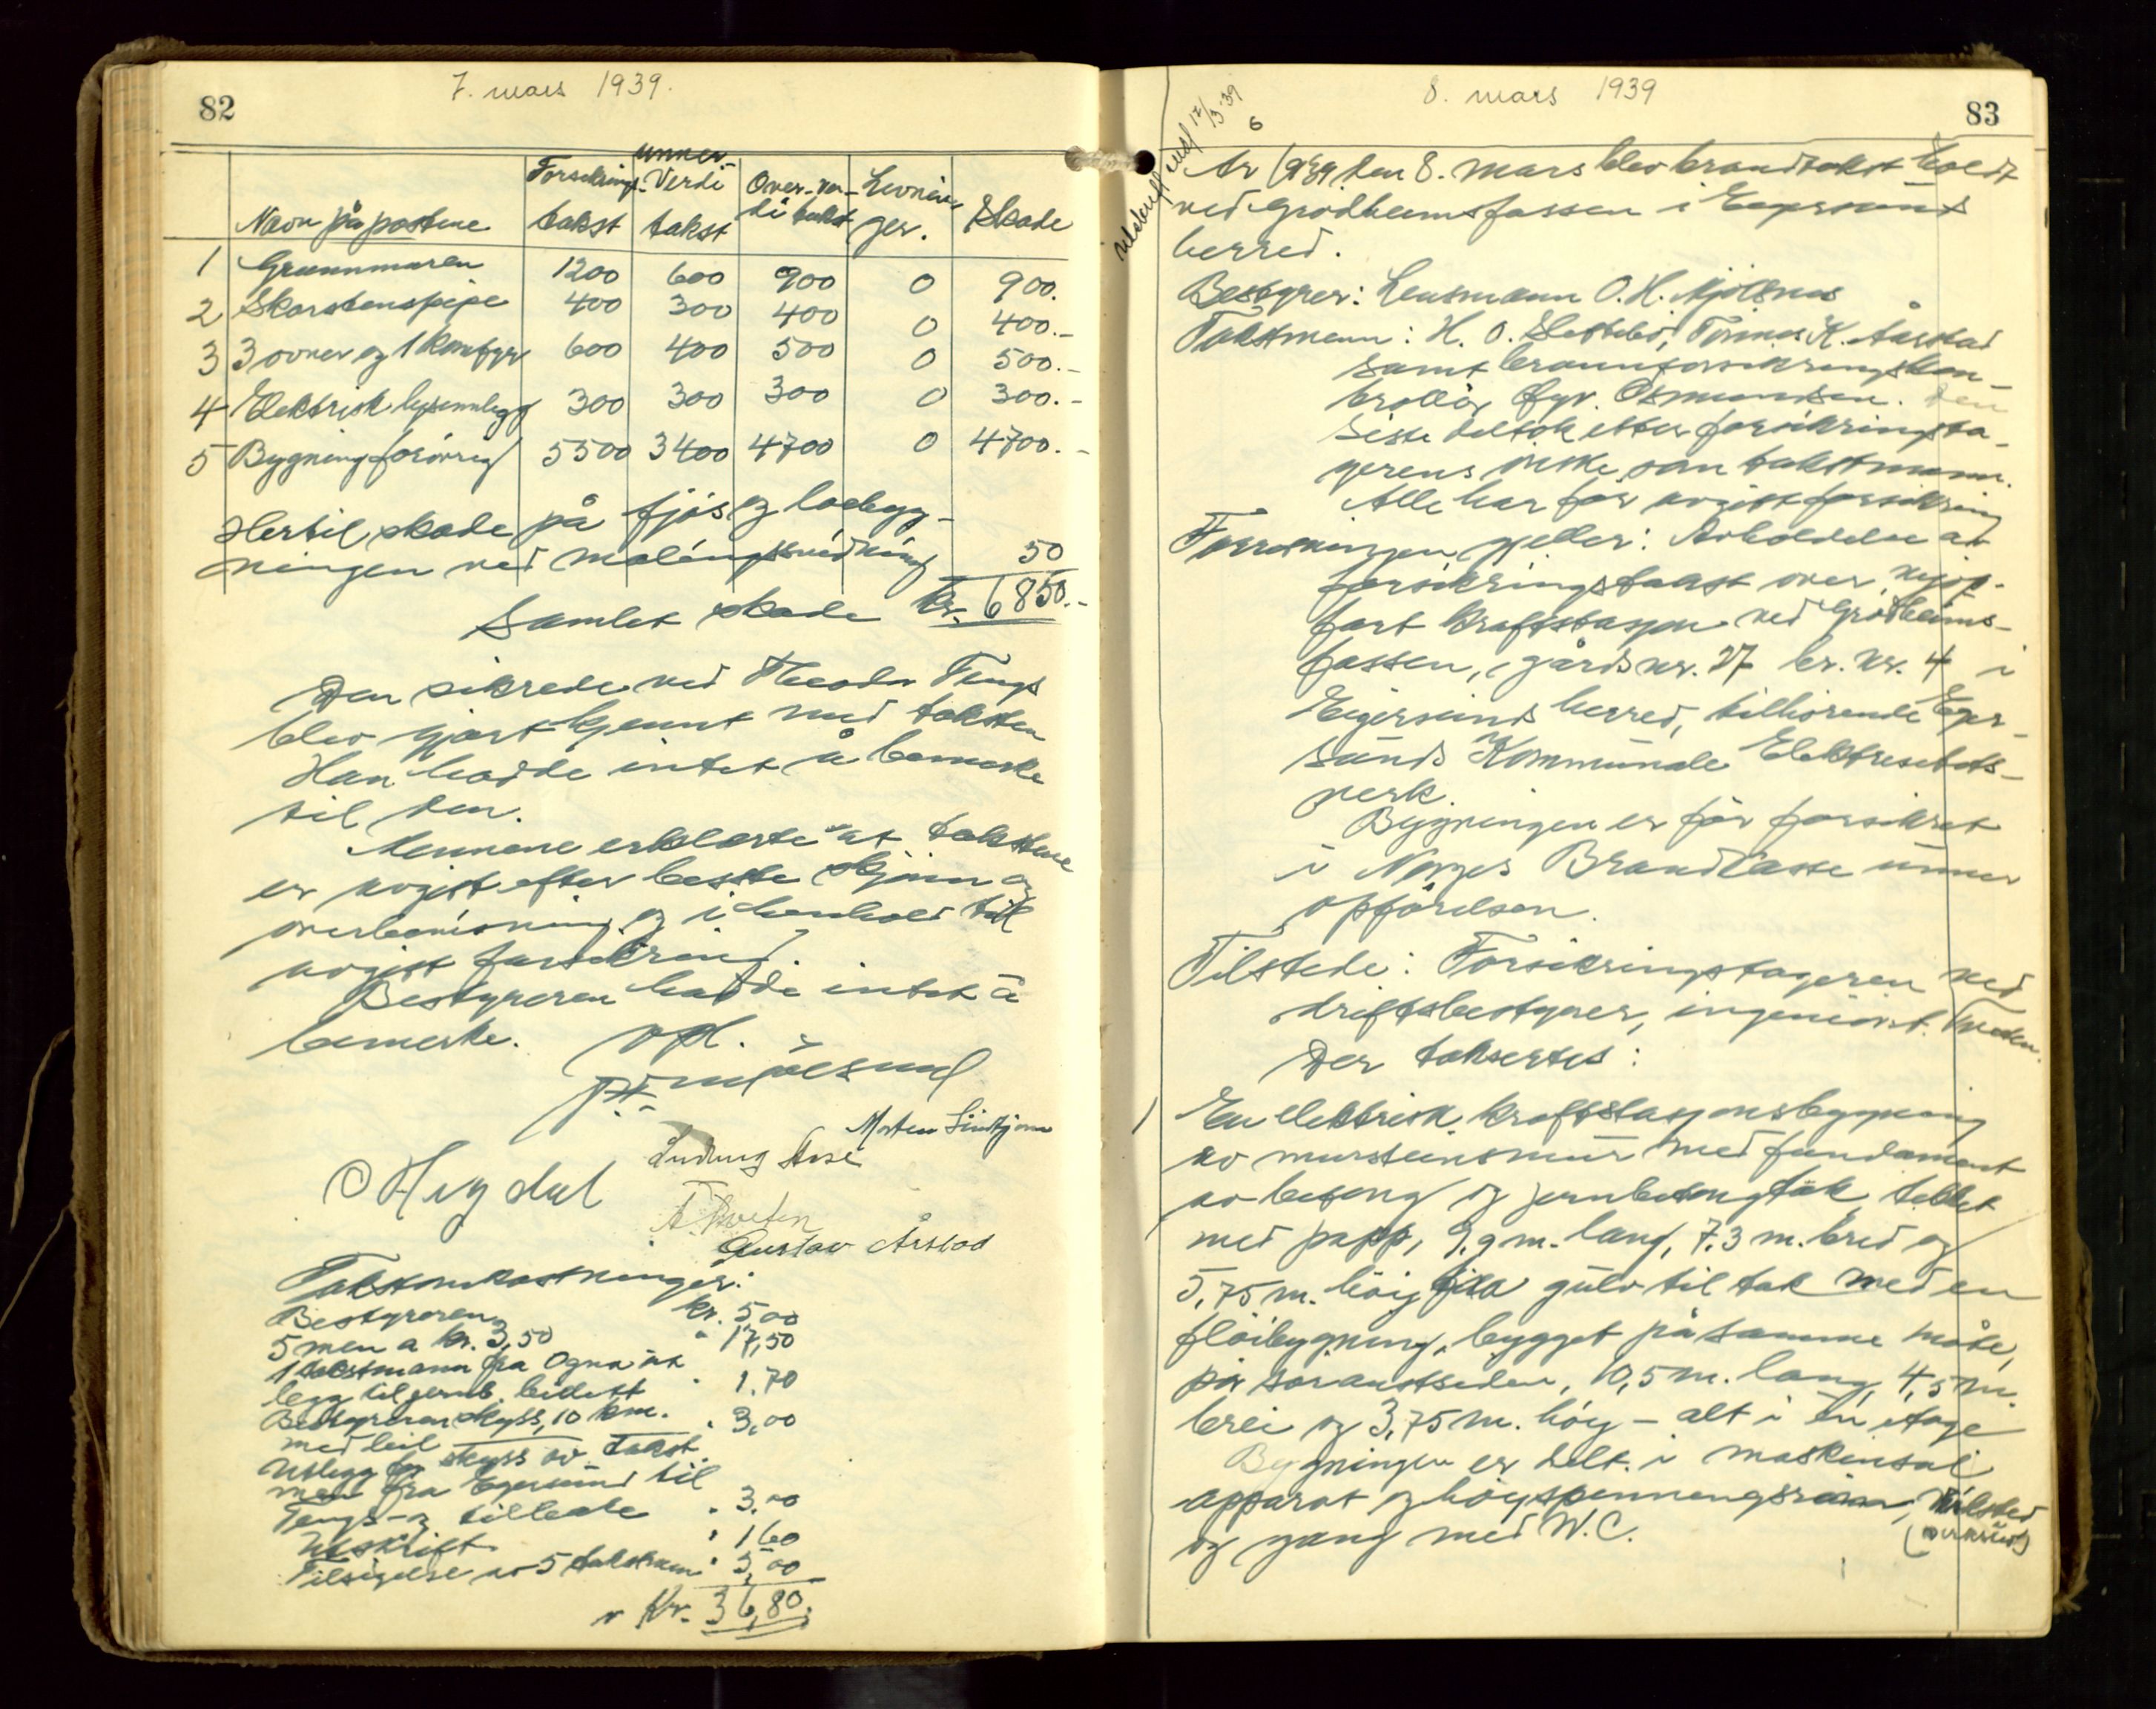 82
7. mars 1939.
Navn på postene Forsikrings-takst unner-Verdi takst Over-ver-di takst Levnin-ger. Skade
1 Grunnmuren 1200 600 900 0 900.
2 Skorstenspipe 400 300 400 0 400.-
3 3 ovner og 1 komfyr 600 400 500 0 500.-
4 Elektrisk lysannlegg 300 300 300 0 300.-
5 Bygning forøvrig 5500 3400 4700 0 4700.-
Hertil skade på fjøs og loebyg-
ningen ved malings 50
Samlet skade kr. 6850.-
Den sikrede ved Theodor Tengs
blev gjort kjennt med taksten
Han hadde intet å bemerke
til den.
Mennene erklærte at takstene
er avgist efter beste skjønn og
overbevisning og i henhold til
avgist forsikring.
Bestyreren hadde intet å
bemerke. opl.
Mjølsnes
Morten Lindtjørn
Ludvig Aase
O Hegdal
Gustav Årstad
Takstomkostninger:
Bestyreren kr. 5,00
5 men a kr. 3,50 " 17,50
1 takstmann fra Ogna ut
legg til jernb. billett " 1.70
Bestyreren skyss, 10 km.
med bil " 3,00
Utlegg for skyss av takst
men fra Egersund til
Tengs og tilbake " 3.00
Utskrift " 1 60
Tilsigelse av 5 takstm. " 5,00
Kr. 36,80.
83
8. mars 1939
17/3 39
6
År 1939 den 8. mars blev brandtakst holdt
ved Grødheimsfossen i Eigersunds
herred.
Bestyrer: Lensmann O. H. Mjølsnes
Takstmenn: H. O. Slettebø, Tønnes K. Aarstad
samt brannforsikringskon-
trollør Osmundsen. Den
siste deltok etter forsikringsta-
gerens ønske som takstmann.
Alle har før avgitt forsikring
Forretningen gjeller: Avholdelse av
forsikringstakst over nyop-
ført kraftstasjon ved Grødheims-
fossen, gårds nr. 27 br. nr. 4 i
Eigersunds herred, tilhørende Eger-
sunds Kommunale Elektrisitets-
verk.
Bygningen er før forsikret
i Norges Brandkasse unner
opførelsen.
Tilstede: Forsikringstageren ved
driftsbestyrer, ingeniør
Der taksertes:
1 En elektrisk kraftstasjonsbygning
av mursteinsmur med fundament
av betong og jernbetongtak, tekket
med papp, 9,9 m. lang, 7,3 m. bred og
5,75 m. høig fra gulv til tak med en
fløibygning, bygget på samme måte,
på sørøstsiden, 10,5 m. lang, 4,5 m.
brei og 3,75 m. høig - alt i én etage
Bygningen er delt i maskinsal
apparat og høyspenningsrum,
og gang med W.C.